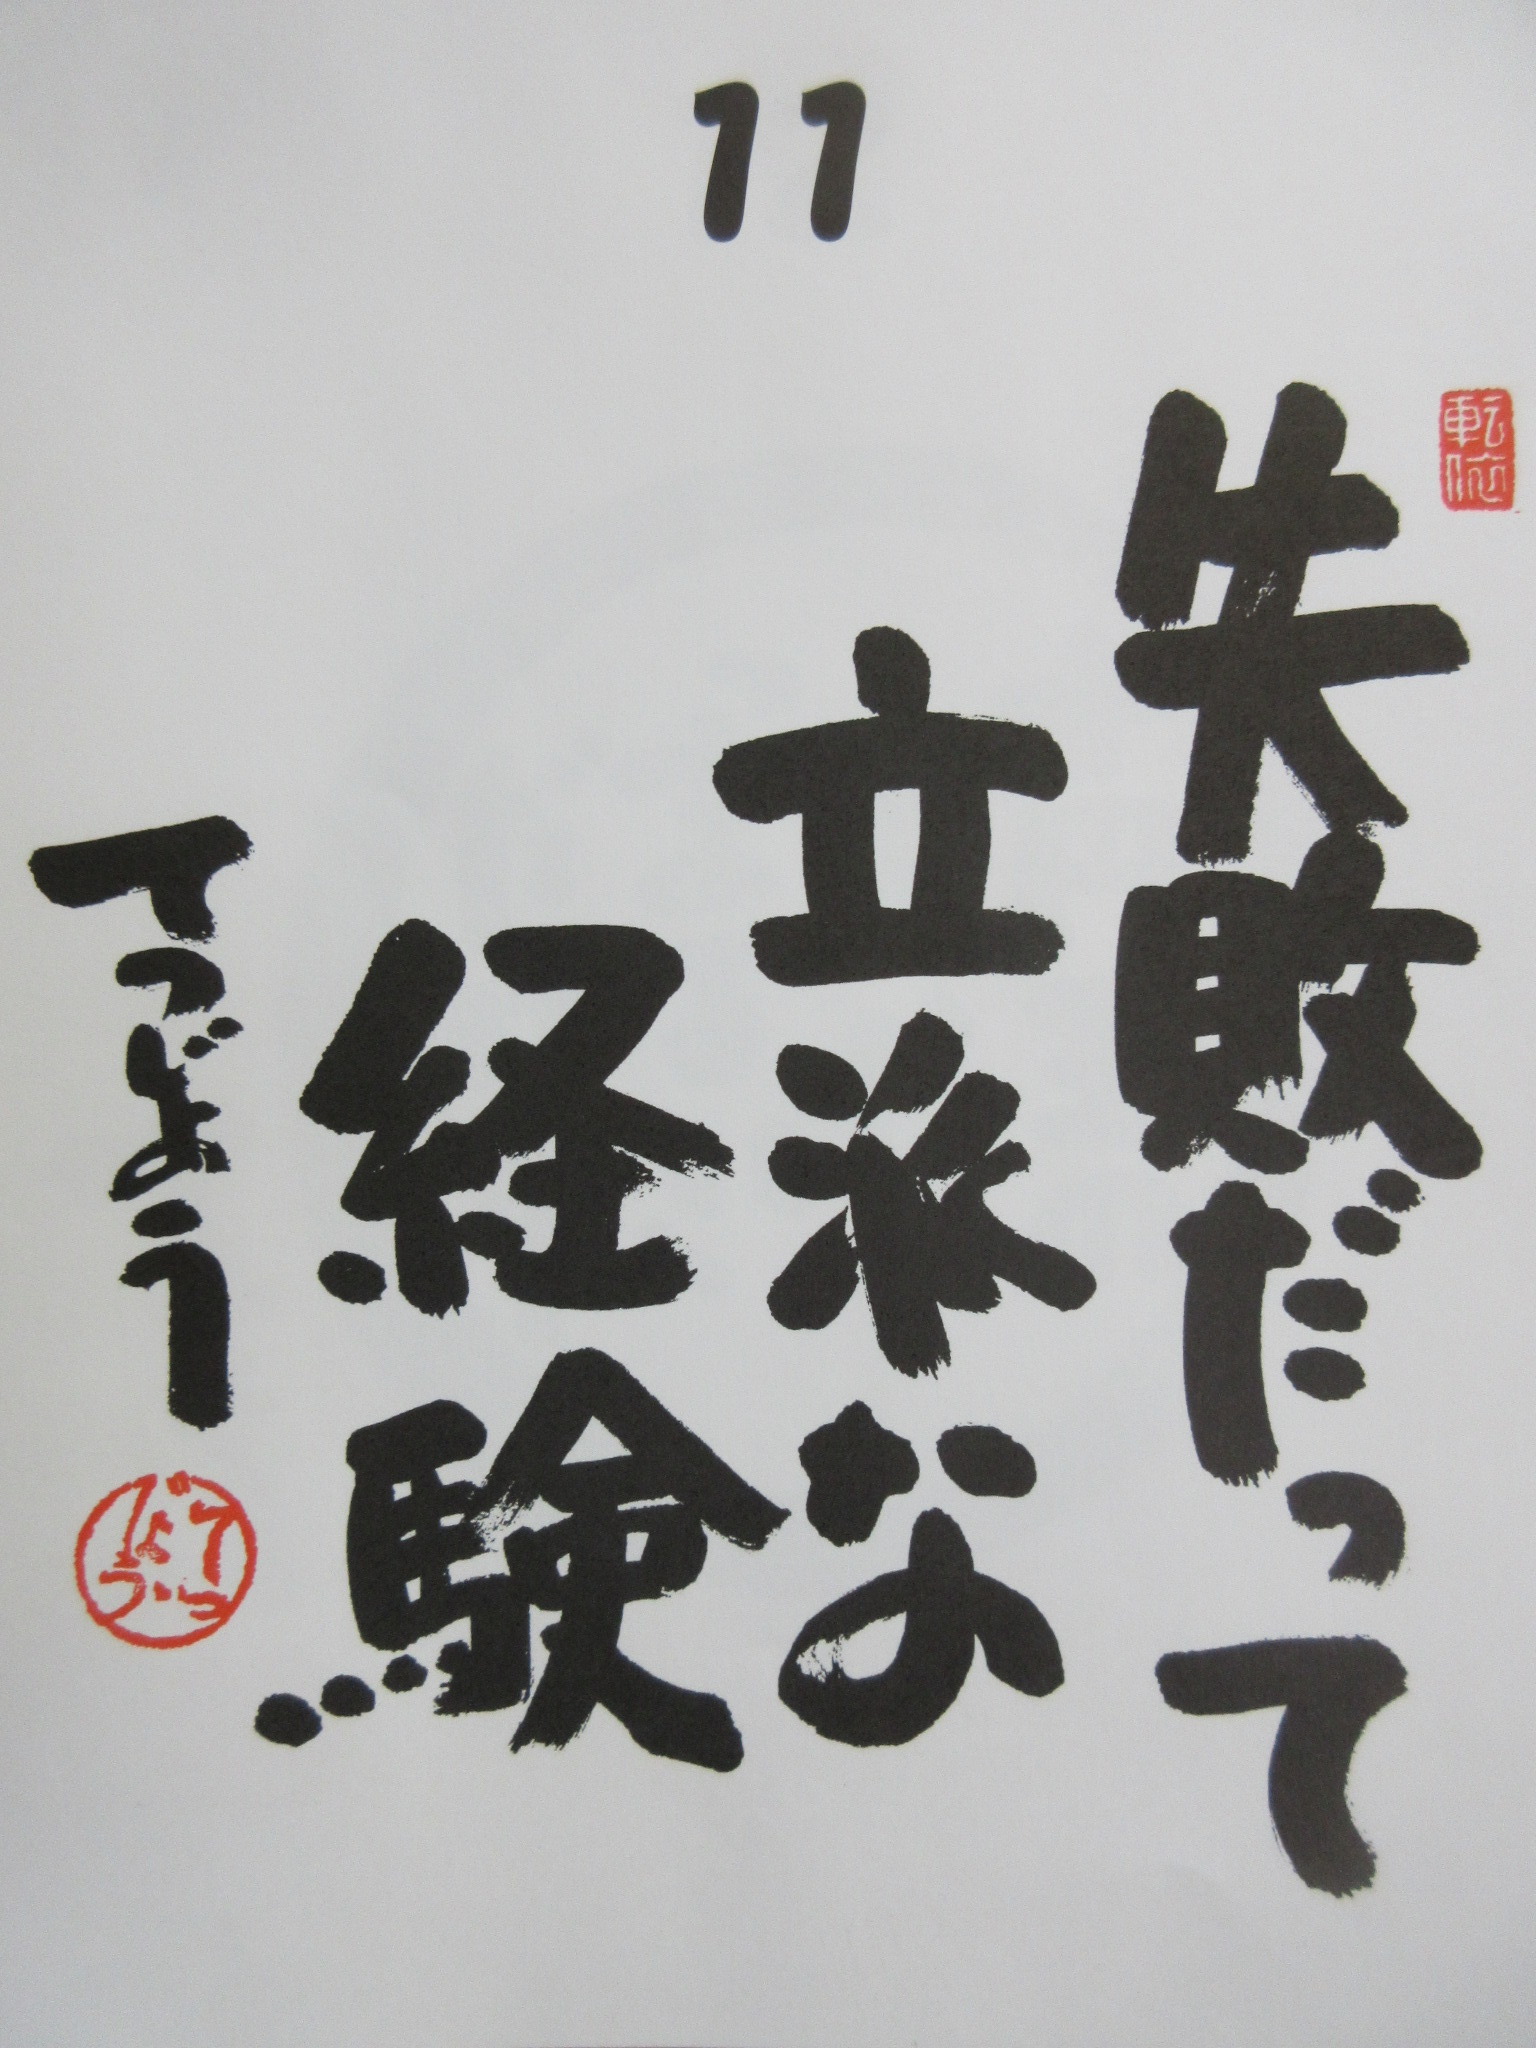 11
失敗だって
立派な
経験…
てつじょう
てつ
じょう